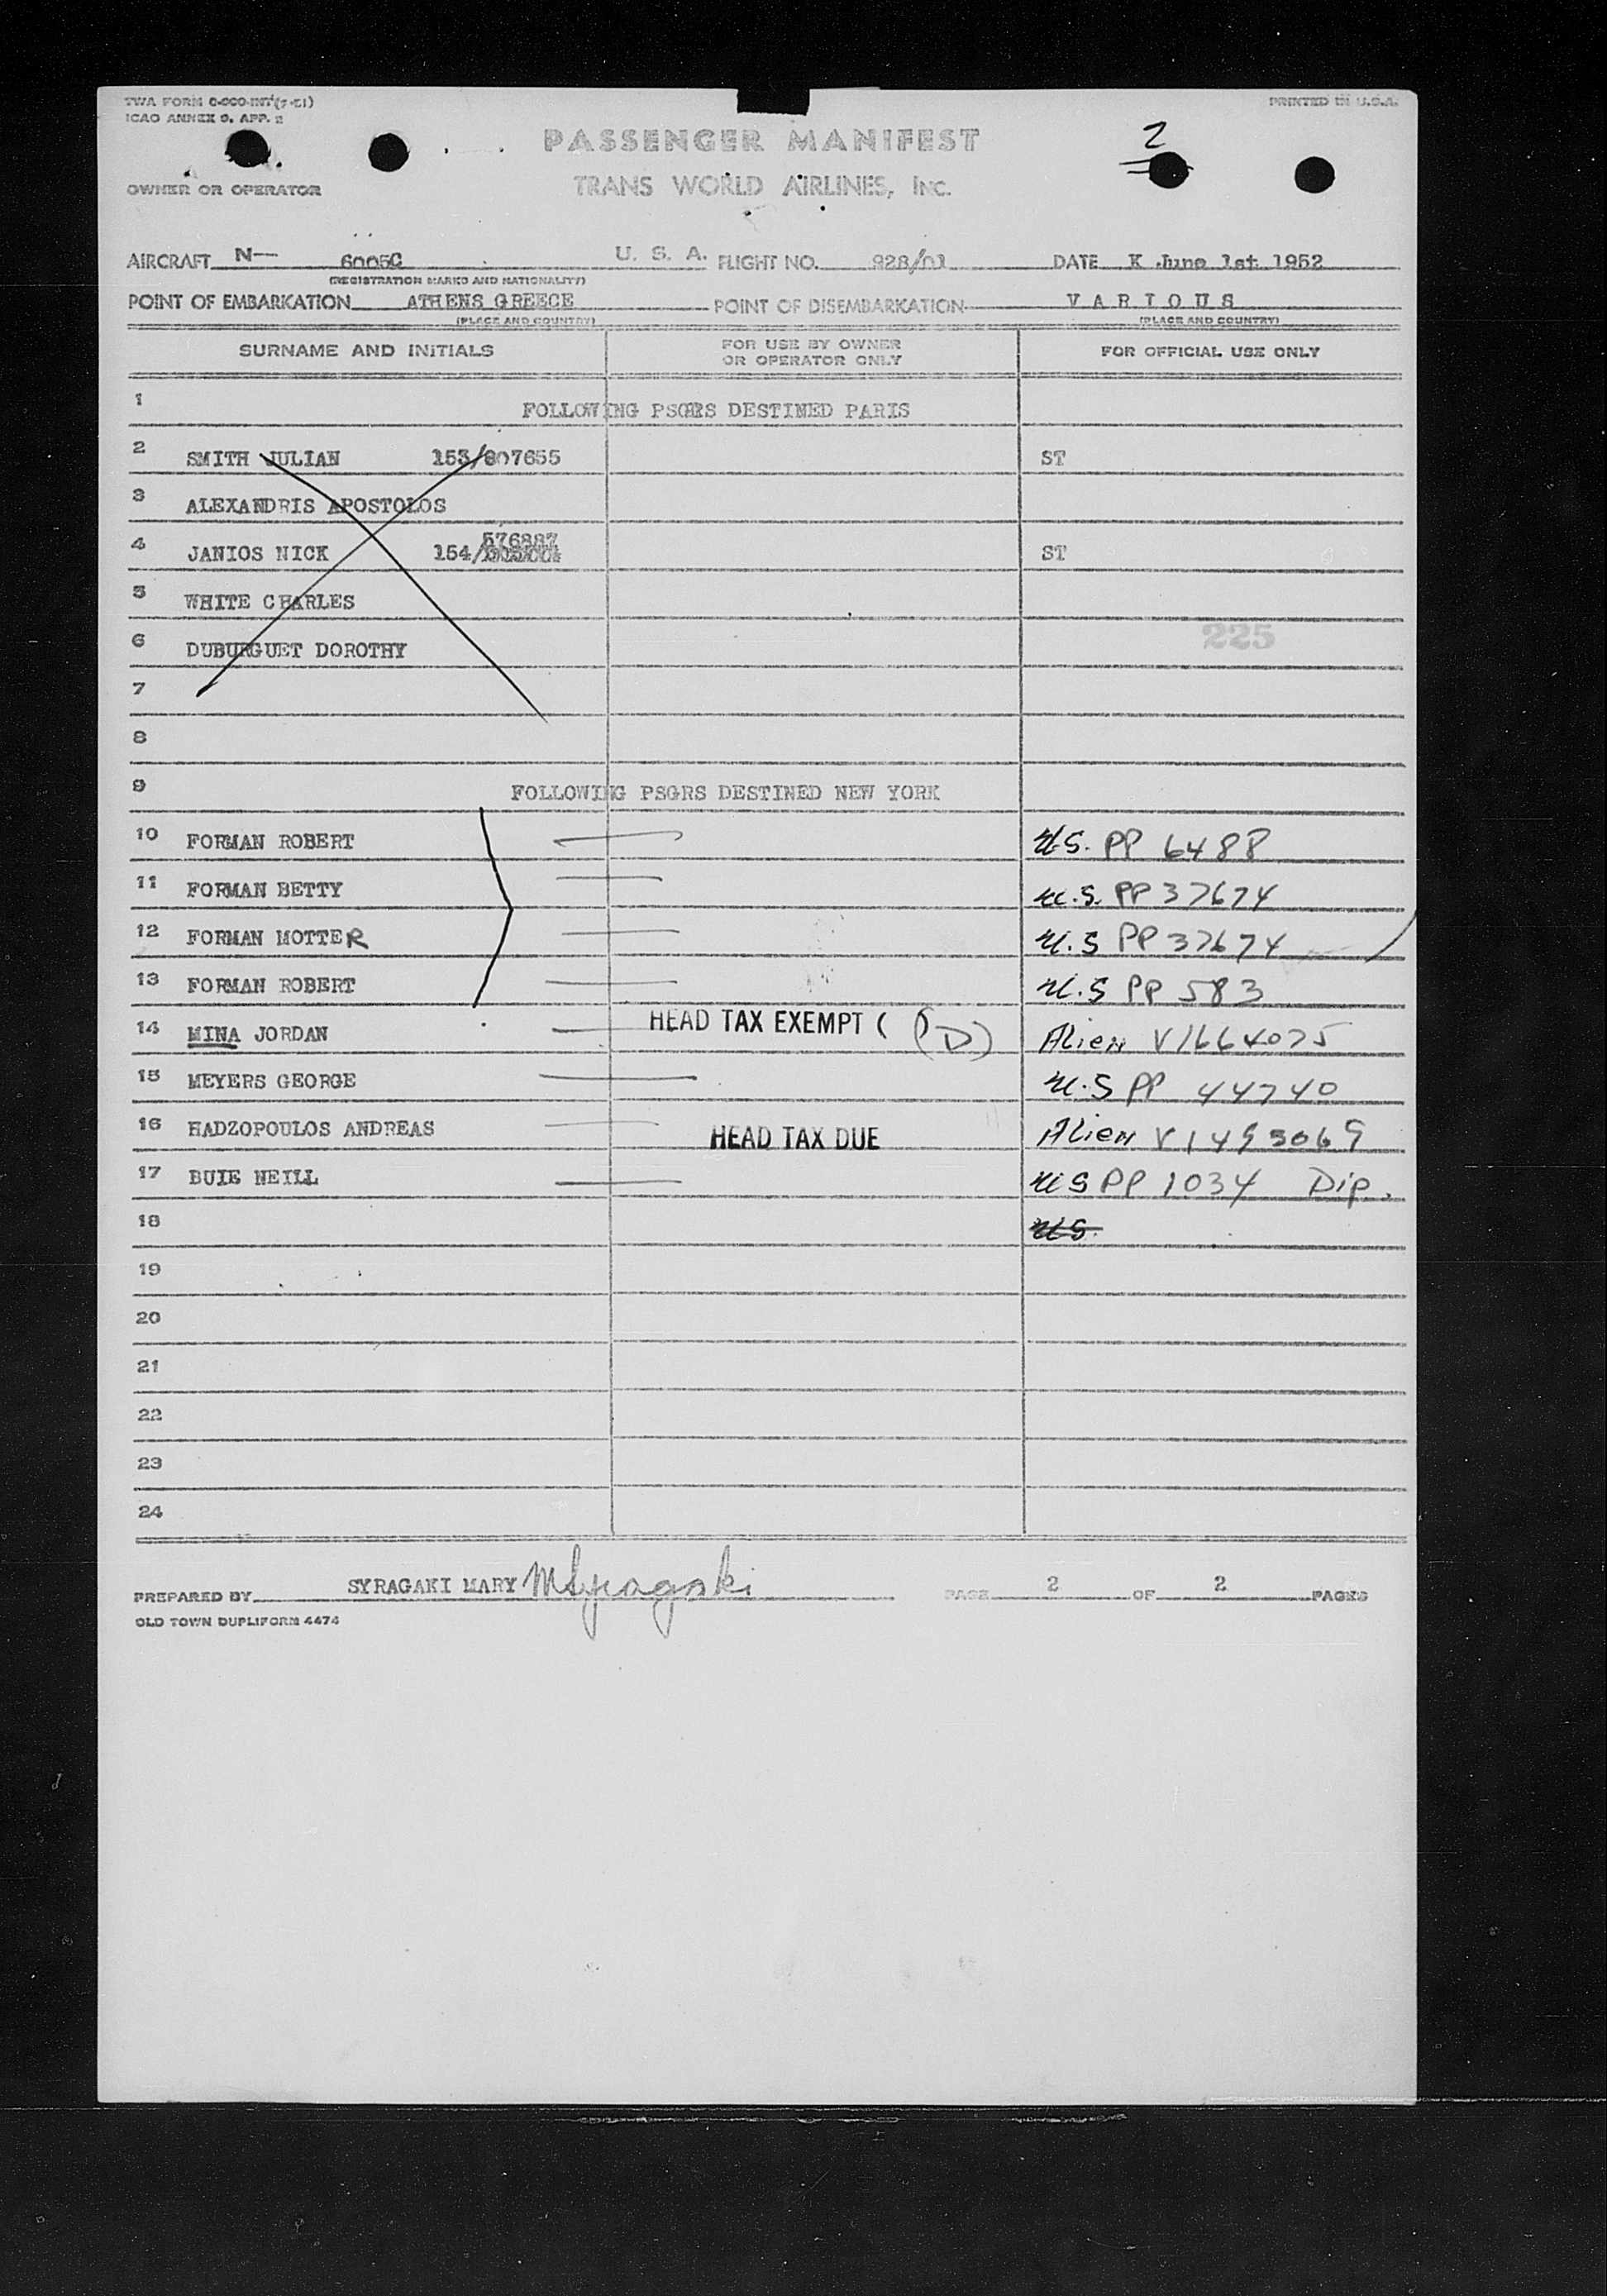 TWA FORM
ICAO ANNEX 9, APP. 2
PRINTED IN U.S.A.
2
PASSENGER MANIFEST
OWNER OR OPERATOR
TRANS WORLD AIRLINES, INC.
AIRCRAFT N— 6005C U. S. A. FLIGHT NO. 928/01 DATE K June 1st 1952
(REGISTRATION MARKS AND NATIONALITY)
POINT OF EMBARKATION ATHENS GREECE POINT OF DISEMBARKATION VARIOUS
(PLACE AND COUNTRY) (PLACE AND COUNTRY)
SURNAME AND INITIALS FOR USE BY OWNER OR OPERATOR ONLY FOR OFFICIAL USE ONLY
1 FOLLOWING PSGRS DESTINED PARIS
2 SMITH JULIAN 153/807655 ST
3 ALEXANDRIS APOSTOLOS
4 JANIOS NICK 154/576887 ST
5 WHITE CHARLES
6 DUBURGUET DOROTHY 225
7
8
9 FOLLOWING PSGRS DESTINED NEW YORK
10 FORMAN ROBERT U.S. PP 6488
11 FORMAN BETTY U.S. PP 37674
12 FORMAN MOTTER U.S PP 37674
13 FORMAN ROBERT U.S PP 583
14 MINA JORDAN HEAD TAX EXEMPT ( (D) Alien V1664075
15 MEYERS GEORGE U.S PP 44740
16 HADZOPOULOS ANDREAS HEAD TAX DUE Alien V1495069
17 BUIE NEILL US PP 1034 Dip.
18 US.
19
20
21
22
23
24
PREPARED BY SYRAGAKI MARY MSyragaki PAGE 2 OF 2 PAGES
OLD TOWN DUPLIFORM 4474